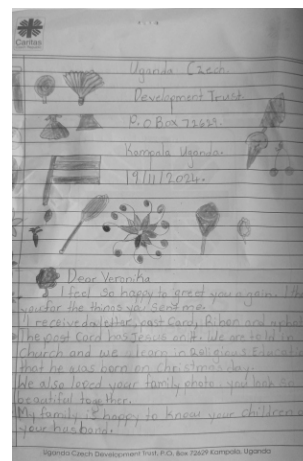 Caritas
Uganda Czech.
Development Trust
P.O Box 72629.
Kampala Uganda.
19/11/2024.
Dear Veronika
I feel so happy to greet you again. I th
you for the things you sent me.
I received a letter, post Card, Ribon and
The post Card has Jesus on it. We are told in
Church and we learn in Religious Educati
that he was born on Christmas day.
We also loved your family photo, you look so
beautiful together.
My family is happy to know your children
your husband.
Uganda Czech Development Trust, P.O. Box 72629 Kampala, Uganda